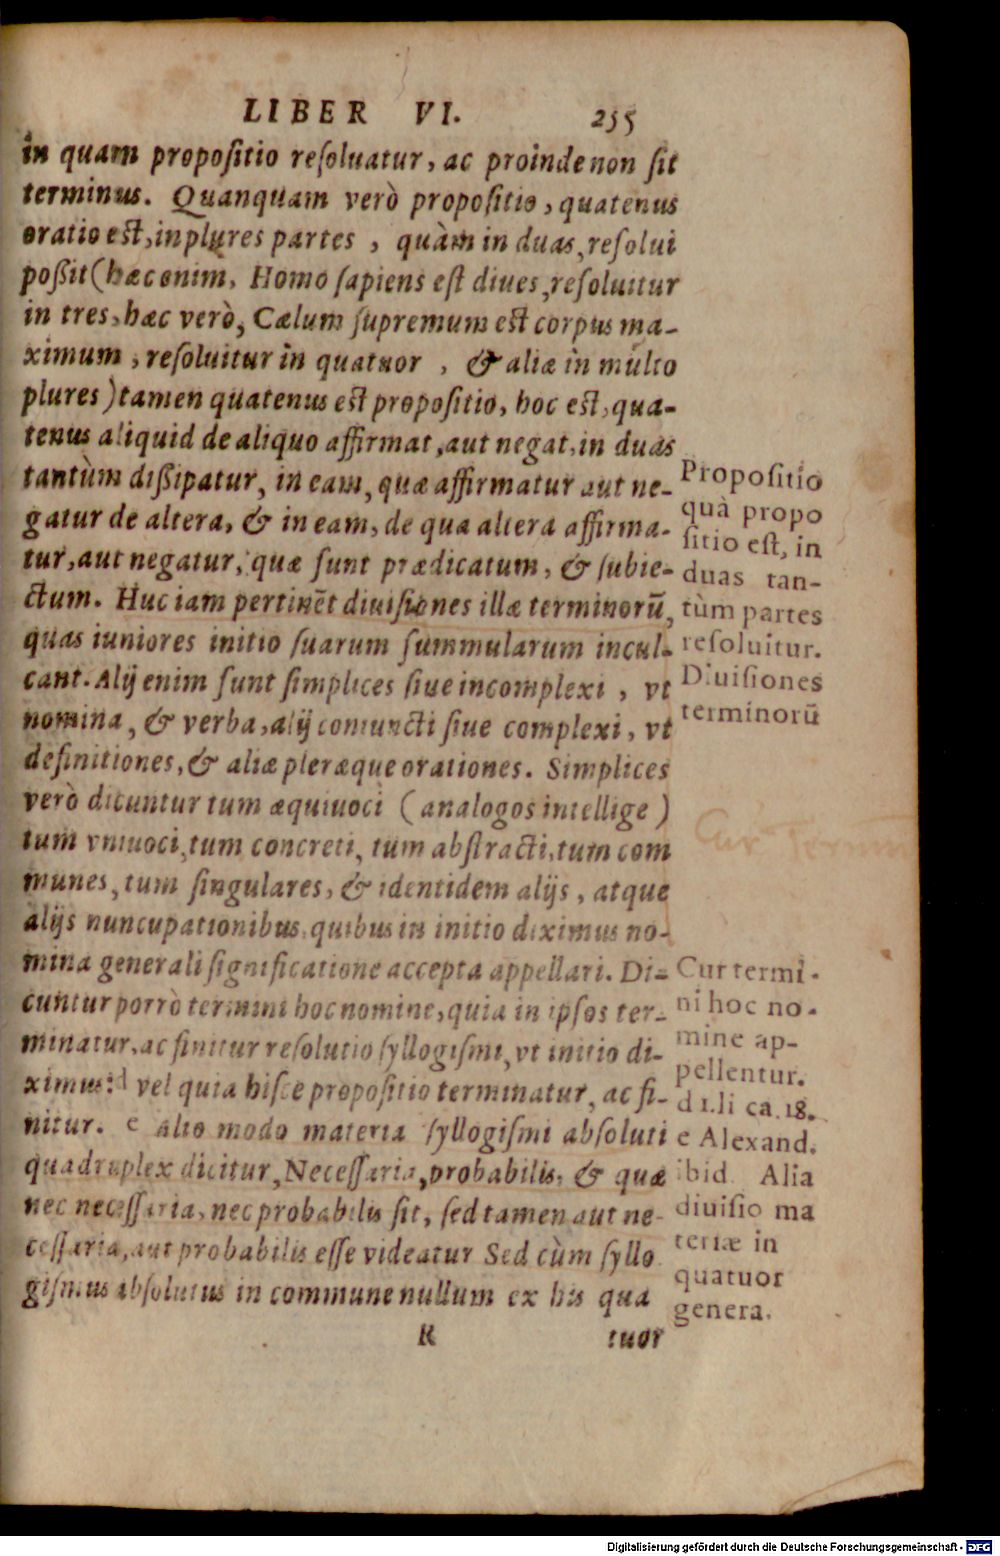 LIBER VI. 255
in quam propositio resoluatur, ac proinde non sit
terminus. Quanquam verò propositio, quatenus
oratio est, in plures partes, quàm in duas, resolui
poßit (hæc enim, Homo sapiens est diues, resoluitur
in tres, hæc verò, Cælum supremum est corpus ma-
ximum, resoluitur in quatuor, & aliæ in multo
plures) tamen quatenus est propositio, hoc est, qua-
tenus aliquid de aliquo affirmat, aut negat, in duas
tantùm dißipatur, in eam, quæ affirmatur aut ne-
gatur de altera, & in eam, de qua altera affirma-
tur, aut negatur, quæ sunt prædicatum, & subie-
ctum. Huc iam pertinēt diuisiones illæ terminorū,
quas iuniores initio suarum summularum incul-
cant. Alij enim sunt simplices siue incomplexi, vt
nomina, & verba, alij coniuncti siue complexi, vt
definitiones, & aliæ pleræque orationes. Simplices
verò dicuntur tum æquiuoci (analogos intellige)
tum vniuoci, tum concreti, tum abstracti, tum com
munes, tum singulares, & identidem alijs, atque
alijs nuncupationibus, quibus in initio diximus no-
mina generali significatione accepta appellari. Di-
cuntur porrò termini hoc nomine, quia in ipsos ter-
minatur, ac finitur resolutio syllogismi, vt initio di-
ximus: d vel quia hisce propositio terminatur, ac fi-
nitur. e alio modo materia syllogismi absoluti
quadruplex dicitur, Necessaria, probabilis, & quæ
nec necessaria, nec probabilis sit, sed tamen aut ne-
cessaria, aut probabilis esse videatur Sed cùm syllo
gismus absolutus in commune nullum ex his qua
R tuor
Propositio
quà propo
sitio est, in
duas tan-
tùm partes
resoluitur.
Diuisiones
terminorū
Cur
Cur termi-
ni hoc no-
mine ap-
pellentur.
d 1.li ca.18.
e Alexand.
ibid Alia
diuisio ma
teriæ in
quatuor
genera.
Digitalisierung gefördert durch die Deutsche Forschungsgemeinschaft - DFG